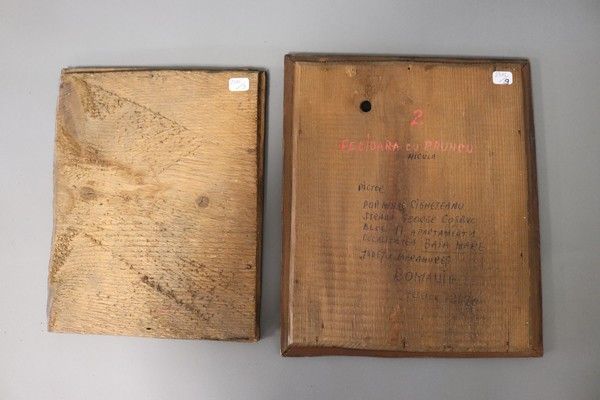 2
FECIOARA CU PRUNCU
NICULA
PICTOR
POP MIHAI SIGHETEANU
STRADA GEORGE COSBUC
BLOC 11 APARTAMENT 1
LOCALITATEA BAIA MARE
JUDEȚU MARAMUREȘ
ROMANIA